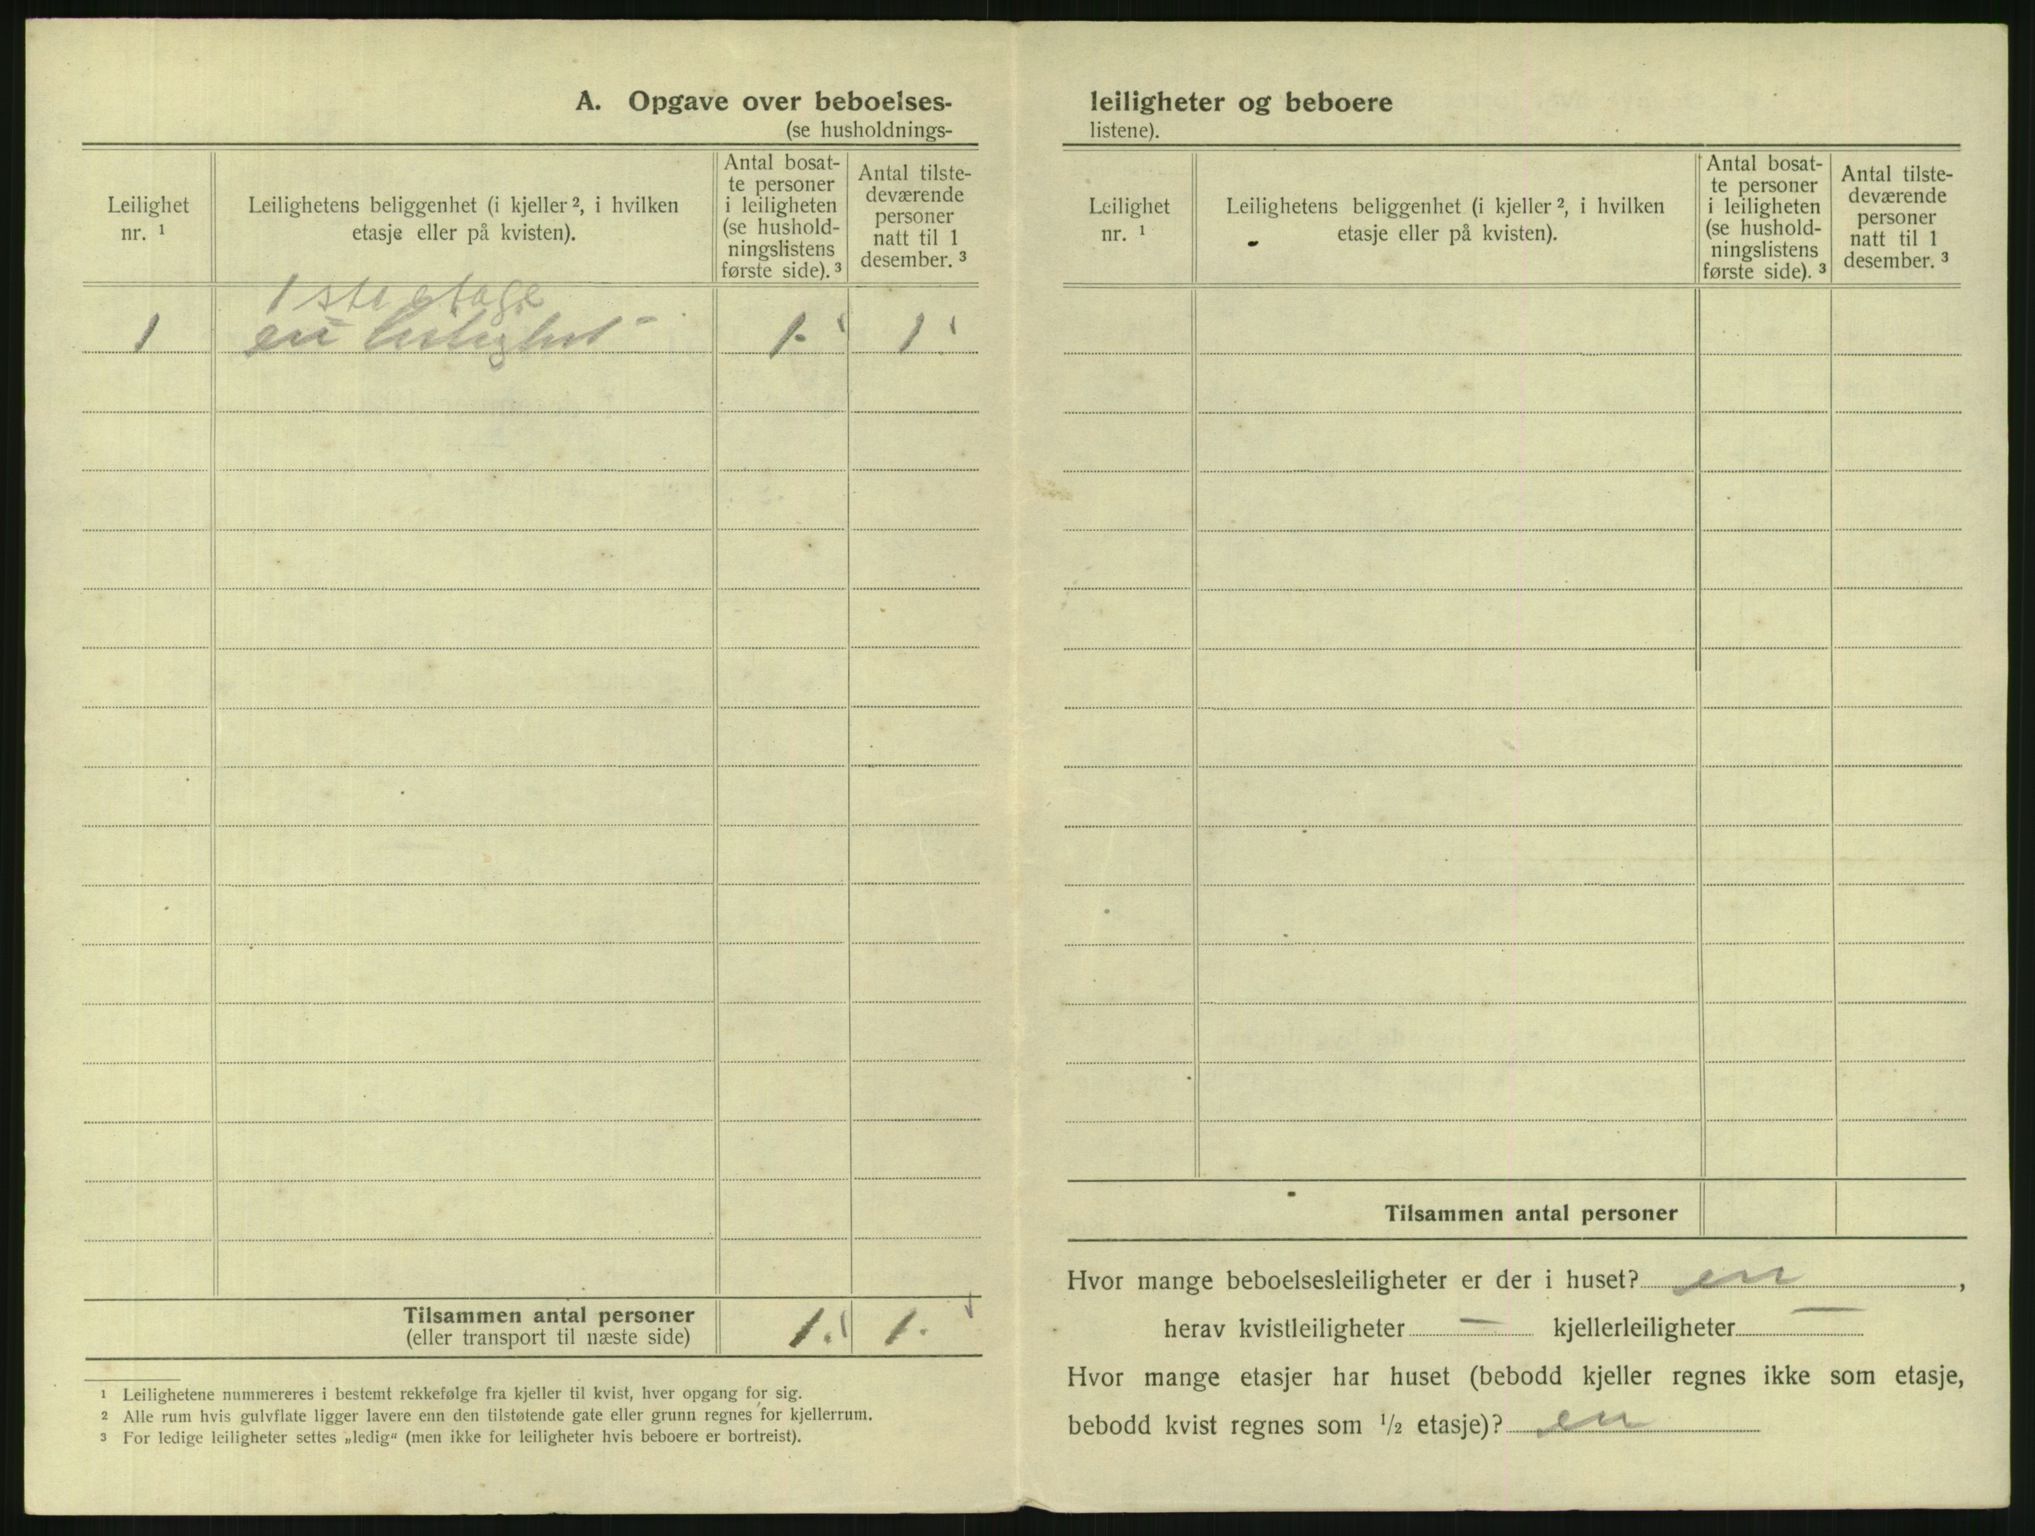 A. Opgave over beboelses-
(se husholdnings-
Leilighet
nr. 1
Leilighetens beliggenhet (i kjeller 2, i hvilken
etasje eller på kvisten).
Antal bosat-
te personer
i leiligheten
(se hushold-
ningslistens
første side). 3
Antal tilste-
deværende
personer
natt til 1
desember. 3
1 ste etage
1 en leilighet 1. 1
Tilsammen antal personer 1. 1.
(eller transport til næste side)
1 Leilighetene nummereres i bestemt rekkefølge fra kjeller til kvist, hver opgang for sig.
2 Alle rum hvis gulvflate ligger lavere enn den tilstøtende gate eller grunn regnes for kjellerrum.
3 For ledige leiligheter settes „ledig“ (men ikke for leiligheter hvis beboere er bortreist).
leiligheter og beboere
listene).
Leilighet
nr. 1
Leilighetens beliggenhet (i kjeller 2, i hvilken
etasje eller på kvisten).
Antal bosat-
te personer
i leiligheten
(se hushold-
ningslistens
første side). 3
Antal tilste-
deværende
personer
natt til 1
desember. 3
Tilsammen antal personer
Hvor mange beboelsesleiligheter er der i huset? en ,
herav kvistleiligheter — kjellerleiligheter —
Hvor mange etasjer har huset (bebodd kjeller regnes ikke som etasje,
bebodd kvist regnes som 1/2 etasje)? en